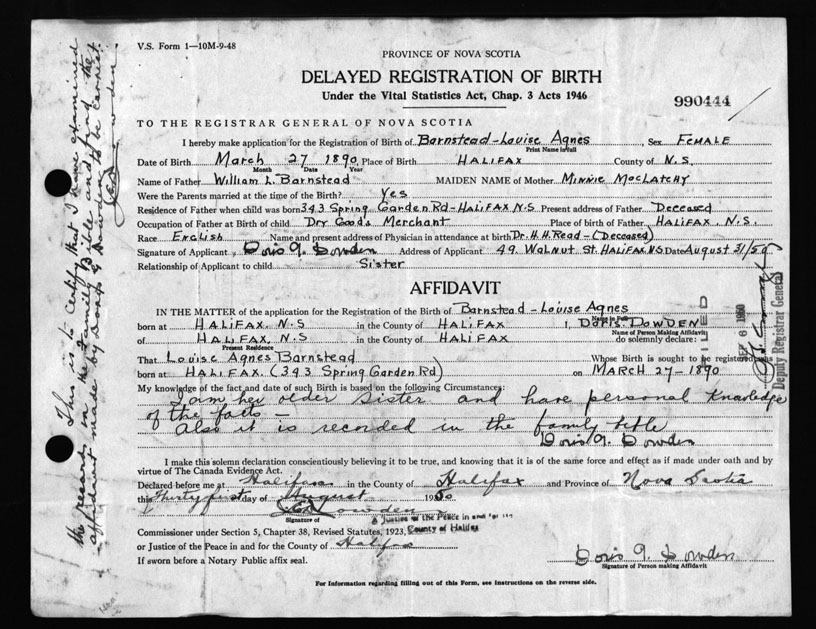 V.S. Form 1—10M-9-48
PROVINCE OF NOVA SCOTIA
DELAYED REGISTRATION OF BIRTH
Under the Vital Statistics Act, Chap. 3 Acts 1946
990444
TO THE REGISTRAR GENERAL OF NOVA SCOTIA
I hereby make application for the Registration of Birth of Barnstead-Louise Agnes, Sex FEMALE
Print Name in full
Date of Birth March 27 1890, Place of Birth HALIFAX County of N.S.
Month Date Year
Name of Father William L. Barnstead MAIDEN NAME of Mother MINNIE MacLATCHY
Were the Parents married at the time of the Birth? Yes
Residence of Father when child was born 343 Spring Garden Rd-HALIFAX N.S Present address of Father Deceased
Occupation of Father at Birth of child Dry Goods Merchant Place of birth of Father HALIFAX, N.S.
Race English Name and present address of Physician in attendance at birth Dr. H.H. Read-(Deceased)
Signature of Applicant Doris G. Dowden Address of Applicant 49 Walnut St. HALIFAX N.S Date August 31/50
Relationship of Applicant to child Sister
AFFIDAVIT
IN THE MATTER of the application for the Registration of the Birth of Barnstead-Louise Agnes
Name in Full
born at HALIFAX, N.S in the County of HALIFAX I, Doris. DOWDEN
Name of Person Making Affidavit
of HALIFAX, N.S in the County of HALIFAX do solemnly declare:
Present Residence
That Louise Agnes Barnstead Whose Birth is sought to be registered was
born at HALIFAX. (343 Spring Garden Rd) on MARCH 27-1890
My knowledge of the fact and date of such Birth is based on the following Circumstances:
I am her older sister and have personal knowledge
of the facts -
Also it is recorded in the family bible
Doris G. Dowden
I make this solemn declaration conscientiously believing it to be true, and knowing that it is of the same force and effect as if made under oath and by
virtue of The Canada Evidence Act.
Declared before me at Halifax in the County of Halifax and Province of Nova Scotia
this Thirty first day of August 1950
Dowden
Signature of
A Justice of the Peace in and for the
County of Halifax
Commissioner under Section 5, Chapter 38, Revised Statutes, 1923,
or Justice of the Peace in and for the County of Halifax
If sworn before a Notary Public affix seal.
Doris G. Dowden
Signature of Person making Affidavit
For Information regarding filling out of this Form, see Instructions on the reverse side.
This is to certify that I have examined
the record in the Family Bible and find the
affidavit made by Doris G Dowden to be correct.
Dowden
FILED
SEP 6 1950
Deputy Registrar General